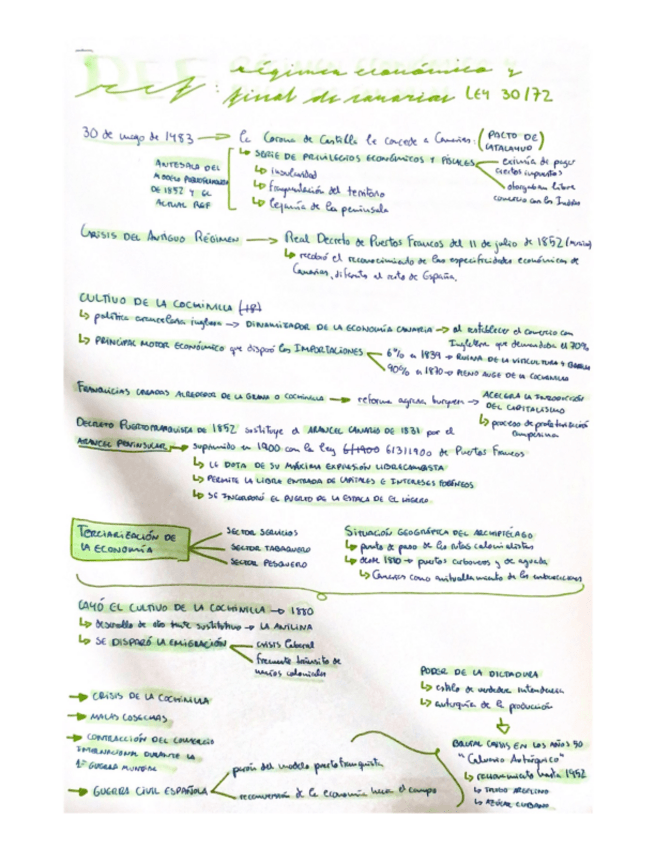 REF: régimen económico y
fiscal de canarias LEY 30/72
30 de mayo de 1483 → la Corona de Castilla le concede a Canarias: (PACTO DE
CALATAYUD)
↳ SERIE DE PRIVILEGIOS ECONÓMICOS Y FISCALES
↳ insularidad
↳ fragmentación del territorio
↳ lejanía de la península
eximía de pagar
ciertos impuestos
otorgaban libre
comercio con las Indias
ANTESALA DEL
MODELO PUERTOFRANQUISTA
DE 1852 Y EL
ACTUAL REF
CRISIS DEL ANTIGUO RÉGIMEN → Real Decreto de Puertos Francos del 11 de julio de 1852
↳ recobró el reconocimiento de las especificidades económicas de
Canarias, diferente al resto de España.
CULTIVO DE LA COCHINILLA
↳ política arancelaria inglesa → DINAMIZADOR DE LA ECONOMÍA CANARIA → al establecer el comercio con
Inglaterra que demandaba el 70%
↳ PRINCIPAL MOTOR ECONÓMICO que disparó las IMPORTACIONES
6% en 1839 → RUINA DE LA VITICULTURA Y BARRILLA
90% en 1870 → PLENO AUGE DE LA COCHINILLA
FRANQUICIAS CREADAS ALREDEDOR DE LA GRANA O COCHINILLA → reforma agraria burguesa → ACELERA LA INTRODUCCIÓN
DEL CAPITALISMO
↳ proceso de proletarización
campesina
DECRETO PUERTOFRANQUISTA DE 1852 sustituye el ARANCEL CANARIO DE 1831 por el
ARANCEL PENINSULAR → suprimido en 1900 con la ley 6/1900 6/3/1900 de Puertos Francos
↳ LE DOTA DE SU MÁXIMA EXPRESIÓN LIBRECAMBISTA
↳ PERMITE LA LIBRE ENTRADA DE CAPITALES E INTERESES FORÁNEOS
↳ SE INCORPORÓ EL PUERTO DE LA ESTACA DE EL HIERRO
TERCIARIZACIÓN DE
LA ECONOMÍA
SECTOR SERVICIOS
SECTOR TABAQUERO
SECTOR PESQUERO
SITUACIÓN GEOGRÁFICA DEL ARCHIPIÉLAGO
↳ punto de paso de las rutas colonialistas
↳ desde 1880 → puertos carboneros y de aguada
↳ Canarias como avituallamiento de las embarcaciones
CAYÓ EL CULTIVO DE LA COCHINILLA → 1880
↳ desarrollo de otro tinte sustitutivo → LA ANILINA
↳ SE DISPARÓ LA EMIGRACIÓN
crisis laboral
frecuente tránsito de
navíos coloniales
→ CRISIS DE LA COCHINILLA
→ MALAS COSECHAS
→ CONTRACCIÓN DEL COMERCIO
INTERNACIONAL DURANTE LA
1ª GUERRA MUNDIAL
→ GUERRA CIVIL ESPAÑOLA
parón del modelo puertofranquista
reconversión de la economía hacia el campo
PODER DE LA DICTADURA
↳ estilo de verdadera intendencia
↳ autarquía de la producción
BRUTAL CRISIS EN LOS AÑOS 50
"Calvario Autárquico"
↳ racionamiento hasta 1952
↳ TRIGO ARGENTINO
↳ AZÚCAR CUBANO